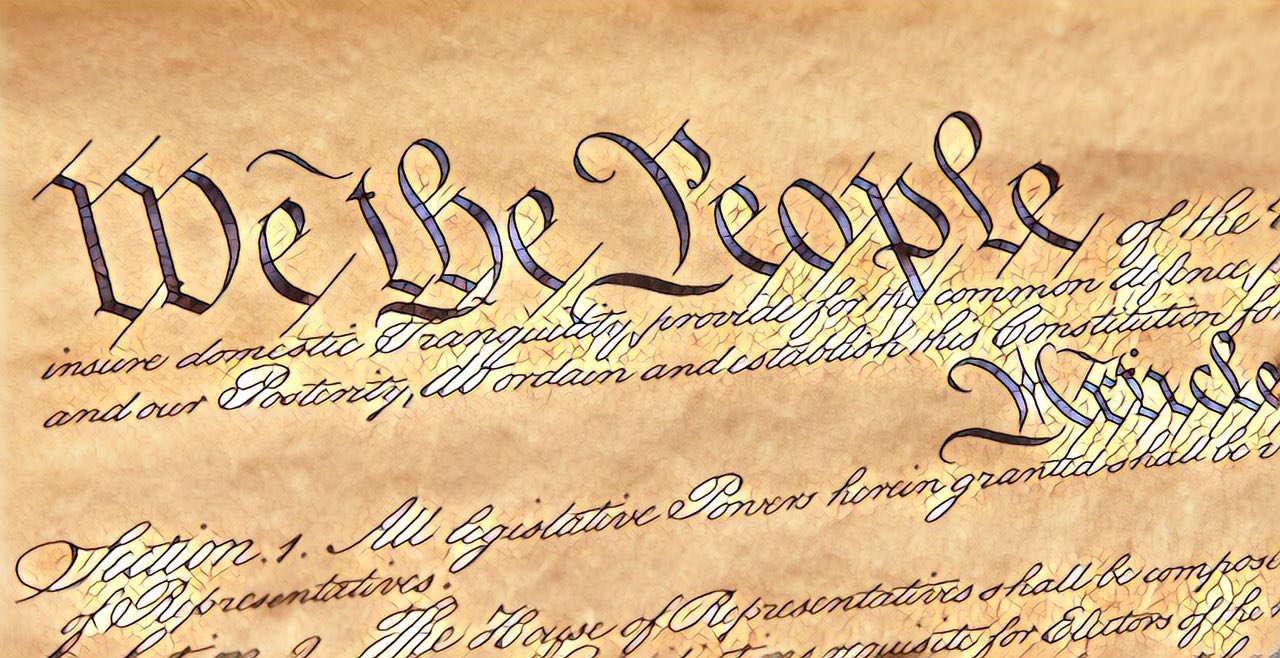 We the People of the
insure domestic Tranquility, provide for the common defence,
and our Posterity, do ordain and establish this Constitution for
Section. 1. All legislative Powers herein granted shall be
of Representatives.
The House of Representatives shall be compose
requisite for Electors of the